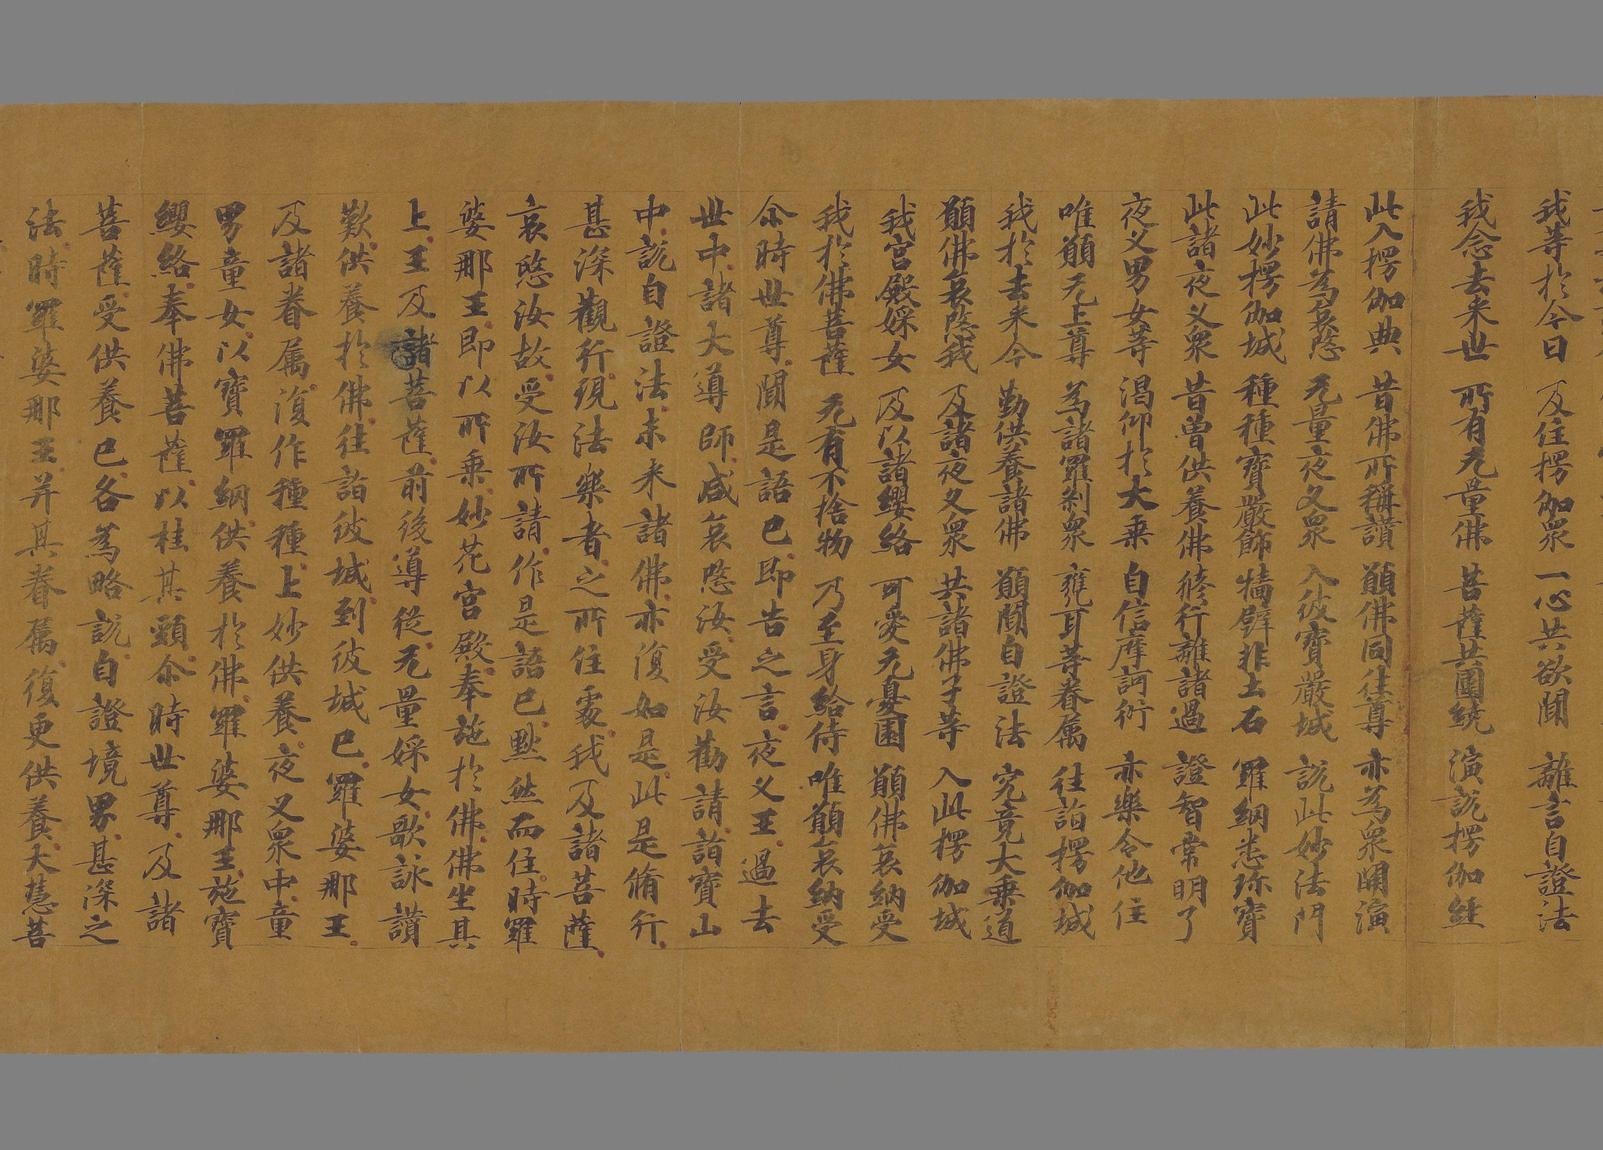 我等於今日　及住楞伽眾　一心共欲聞　離言自證法
我念去来世　所有无量佛　菩薩共圍繞　演說楞伽経
此入楞伽典　昔佛所稱讃　願佛同往尊　亦為眾開演
請佛為哀愍　无量夜叉眾　入彼寶嚴城　說此妙法門
此妙楞伽城　種種寶嚴飾　牆壁非土石　羅網悉珎寶
此諸夜叉眾　昔曾供養佛　修行離諸過　證智常明了
夜叉男女等　渴仰於大乗　自信摩訶衍　亦樂令他住
唯願无上尊　為諸羅剎眾　甕耳等眷属　往詣楞伽城
我於去来今　勤供養諸佛　願聞自證法　究竟大乗道
願佛哀愍我　及諸夜叉眾　共諸佛子等　入此楞伽城
我宮殿婇女　及以諸纓絡　可愛无憂園　願佛哀納受
我於佛菩薩　无有不捨物　乃至身給侍　唯願哀納受
尒時世尊聞是語已即告之言夜叉王過去
世中諸大導師咸哀愍汝受汝勸請詣寶山
中說自證法未来諸佛亦復如是此是脩行
甚深觀行現法樂者之所住處我及諸菩薩
哀愍汝故受汝所請作是語已默然而住時羅
婆那王即以所乗妙花宮殿奉施於佛佛坐其
上王及諸菩薩前後導従无量婇女歌詠讃
歎供養於佛往詣彼城到彼城已羅婆那王
及諸眷属復作種種上妙供養夜叉眾中童
男童女以寶羅網供養於佛羅婆那王施寶
纓絡奉佛菩薩以挂其頸尒時世尊及諸
菩薩受供養已各為略說自證境界甚深之
法時羅婆那王并其眷属復更供養大慧菩